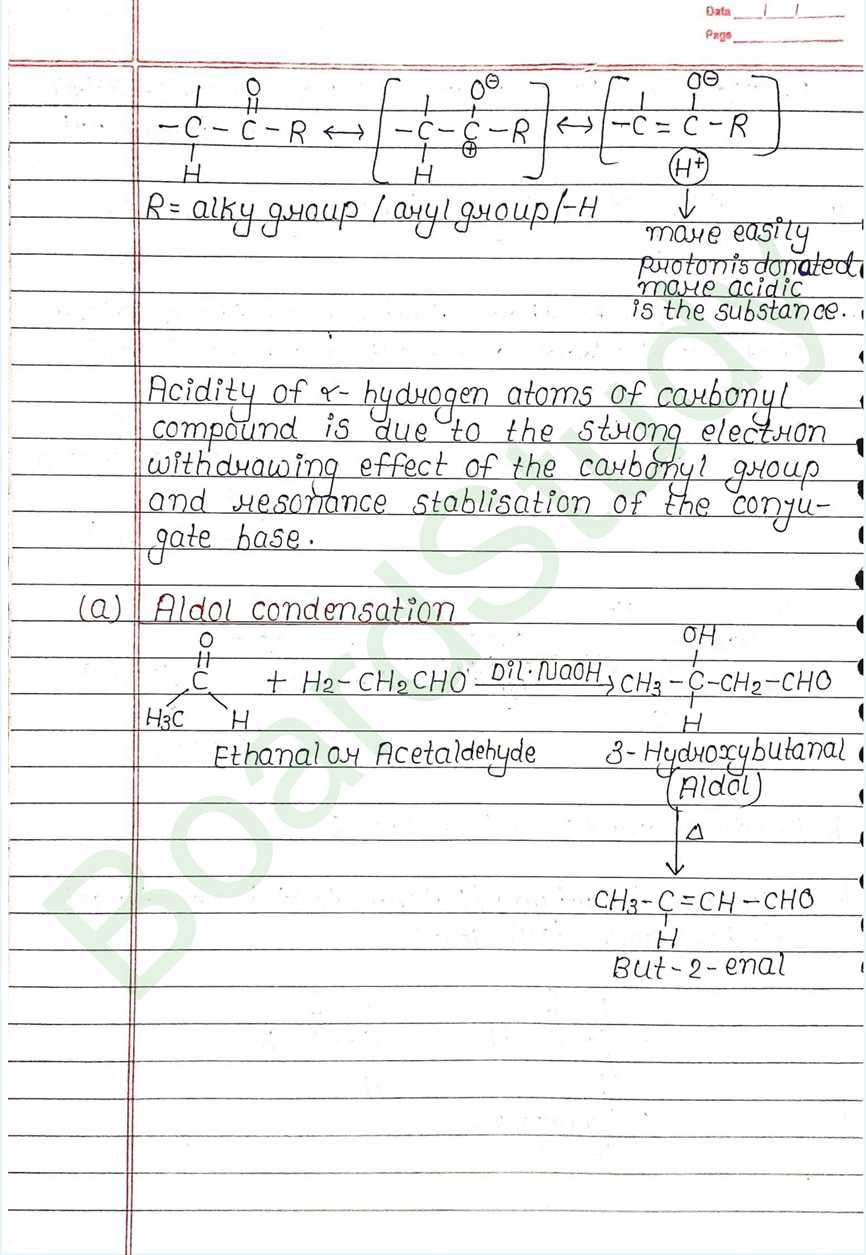 Data __/__/__
Page
O
–C–C–R ↔ [–C–C–R] ↔ [–C=C–R]
H O⊖ ⊕ H O⊖ H+
R = alky group / aryl group/–H
more easily
proton is donated
more acidic
is the substance.
Acidity of α- hydrogen atoms of carbonyl
compound is due to the strong electron
withdrawing effect of the carbonyl group
and resonance stablisation of the conju-
gate base.
(a) Aldol condensation
O OH
C + H2–CH2CHO Dil. NaOH → CH3–C–CH2–CHO
H3C H H
Ethanal or Acetaldehyde 3-Hydroxybutanal
(Aldol)
Δ
CH3–C=CH–CHO
H
But-2-enal
BoardStudy